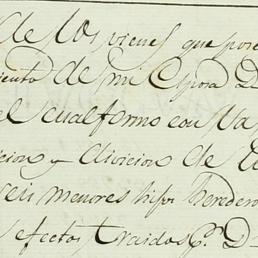 de los vienes que por
miento de mi Espoza D
el cual formo con la
icion y divicion de
seis menores hijos heredero
efectos traidos p.r D.n